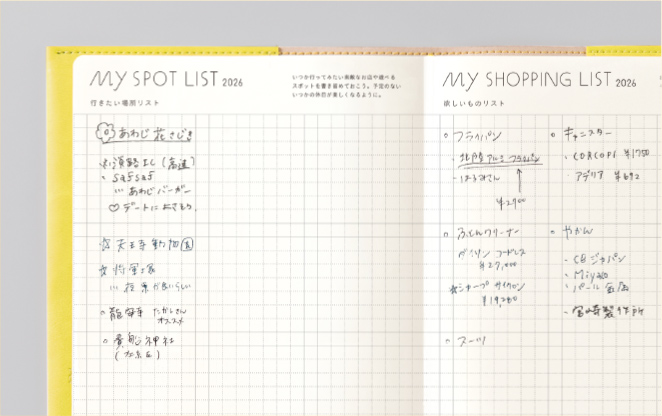 MY SPOT LIST 2026
行きたい場所リスト
いつか行ってみたい素敵なお店や遊べる
スポットを書き留めておこう。予定のない
いつかの休日が楽しくなるように。
あわじ 花さじき
淡路 I.C (高速)
Sa5 Sa5
… あわじバーガー
♡ デートにおすすめ
☆ 天王寺動物園
☆ 将軍塚
… 夜景が良いらしい
○ 龍安寺 たかしさん
オススメ
○ 貴船神社
MY SHOPPING LIST 2026
欲しいものリスト
○ フライパン
・北陸アルミ フライパン
・はるみさん
¥2,900
○ ふとんクリーナー
ダイソン コードレス
¥27,000
☆ シャープ サイクロン
¥19,280
○ スーツ
○ キャニスター
・CORCOPI ¥1750
・アデリア ¥692
○ やかん
・CBジャパン
・Miyako
・パール金属
・宮崎製作所